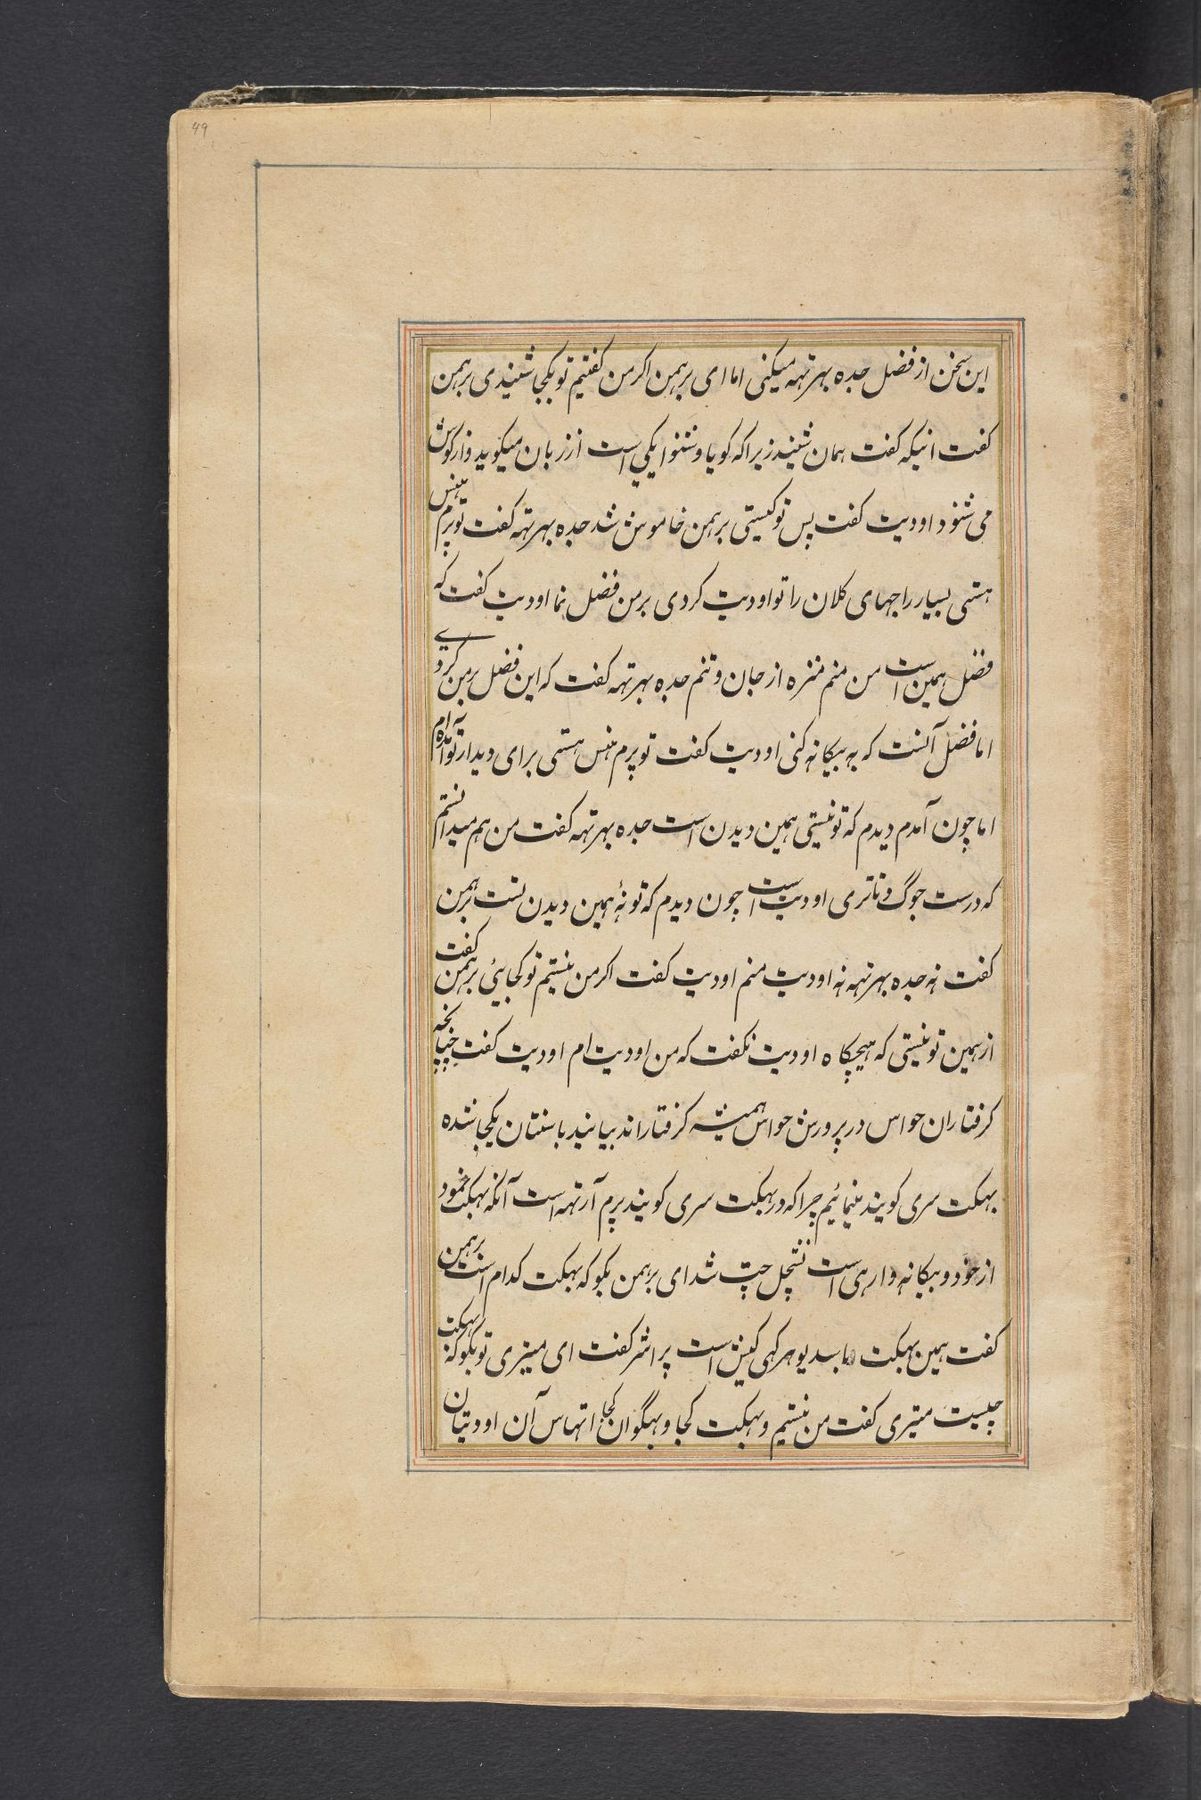 49
این سخن از فضل جده بهرتهه میکنی اما ای برهمن اکر من کفتیم تو بکجا شنیدی برهمن
کفت انیکه کفت همان شنید زیرا که کویا و شنوا یکی است از زبان میکوید و از کوش
می شنود اودیت کفت پس تو کیستی برهمن خاموش شد جده بهرتهه کفت تو پرم هنس
هستی بسیار راجهای کلان را تو اودیت کردی بر من فضل نما اودیت کفت که
فضل همین است من منم منزه از جان و تنم جده بهرتهه کفت که این فضل بر من کردے
اما فضل آنست که به بیکانه کنی اودیت کفت تو پرم هنس هستی برای دیدار تو آمده ام
اما چون آمدم دیدم که تو نیستی همین دیدن است جده بهرتهه کفت من هم میدانستم
که درست جوگ دتاتری اودیت است چون دیدم که تو نهٔ همین دیدن تست برهمن
کفت نه جده بهرتهه نه اودیت منم اودیت کفت اکر من نیستم تو کجایئ برهمن کفت
از همین تو نیستی که هیچکاه اودیت نکفت که من اودیت ام اودیت کفت چنانچه
کرفتاران حواس در پرورش حواس همیشه کرفتار اند بیانید باستان یکجا شده
بهکت سری کویند بنمائیم چرا که در بهکت سری کویند پرم آرتهه است آنکه بهکت نمود
از خود و بیکانه وارهی است نشچل چپ شد ای برهمن بکو که بهکت کدام است برهمن
کفت همین بهکت باسدیو هر کهی کیش است پراشر کفت ای میتری تو بکو که بهکت
چیست میتری کفت من نیستم و بهکت کجا و بهگوان کجا اتهاس آن اودیتان